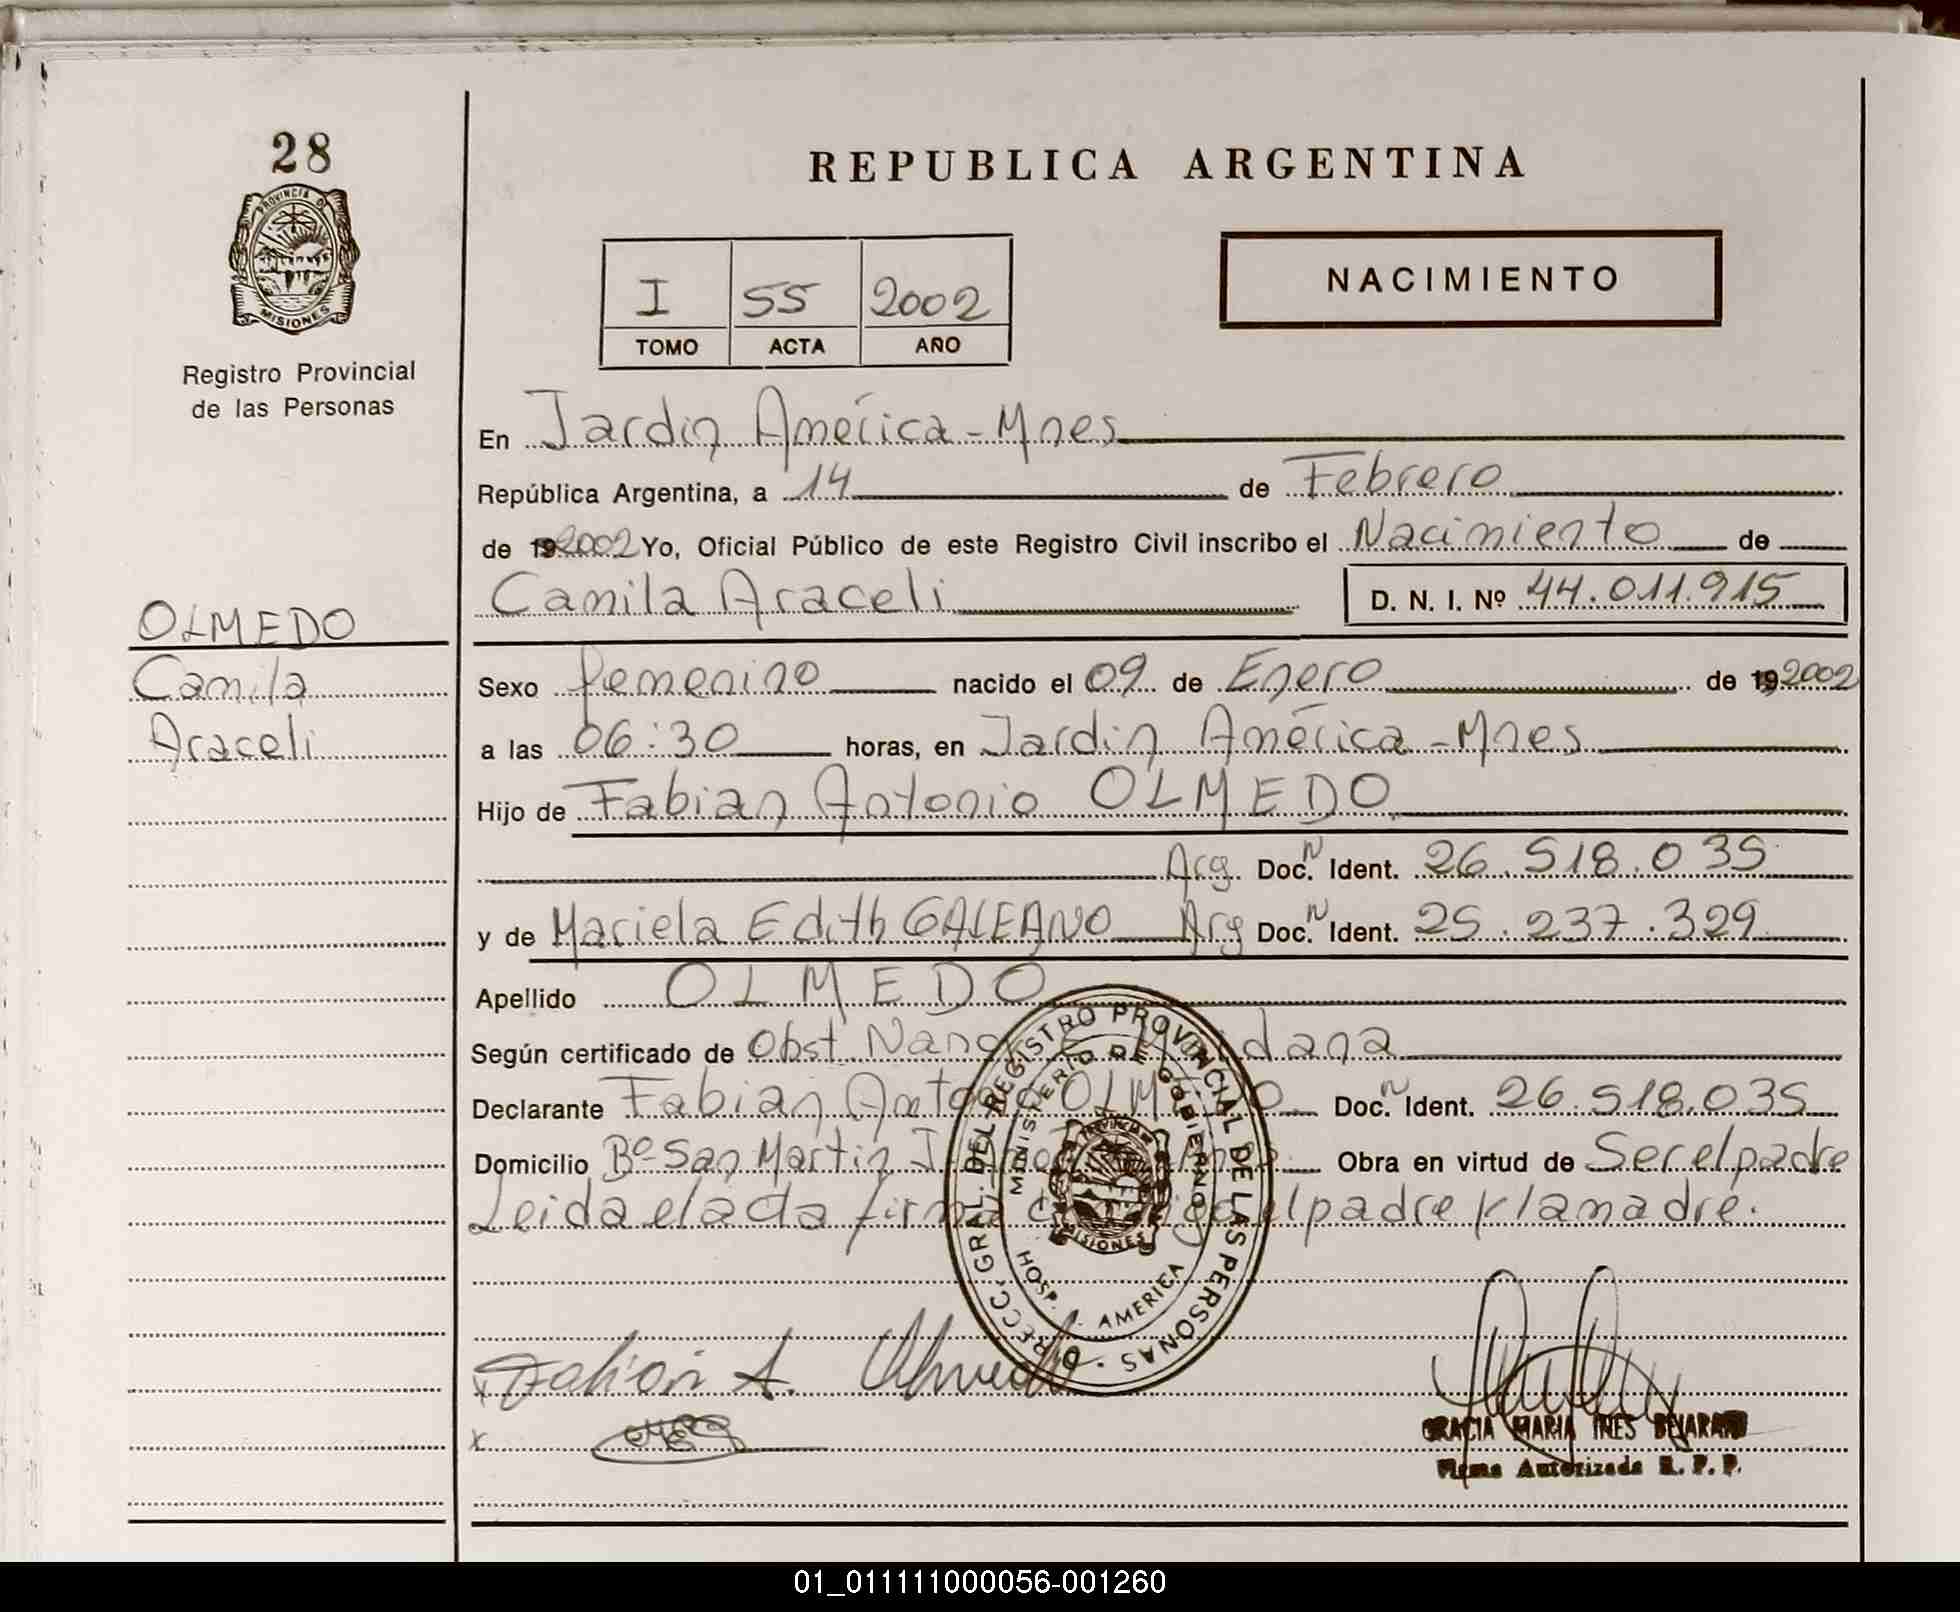 28
PROVINCIA D
MISIONES
Registro Provincial
de las Personas
REPUBLICA ARGENTINA
NACIMIENTO
I 55 2002
TOMO ACTA AÑO
En Jardin América - Mnes
República Argentina, a 14 de Febrero
de 19 2002 Yo, Oficial Público de este Registro Civil inscribo el Nacimiento de
Camila Araceli D. N. I. Nº 44.011.915
OLMEDO
Camila
Araceli
Sexo femenino nacido el 09 de Enero de 19 2002
a las 06:30 horas, en Jardin América - Mnes
Hijo de Fabian Antonio OLMEDO
Arg. Doc. N Ident. 26.518.035
y de Mariela Edith GALEANO Arg Doc. N Ident. 25.237.329
Apellido OLMEDO
Según certificado de Obst. dana
Declarante Fabian Antonio OLMEDO Doc. N Ident. 26.518.035
Domicilio Bº San Martin J. Obra en virtud de Ser el padre
Leida el acta el padre y la madre.
DIRECC. GRAL. DEL REGISTRO PROVINCIAL DE LAS PERSONAS
MINISTERIO DE GOBIERNO
MISIONES
HOSP. J. AMERICA
x Fabián A. Olmedo
x
GRACIA MARIA INES BEJARANO
Firma Autorizada R. P. P.
01_011111000056-001260